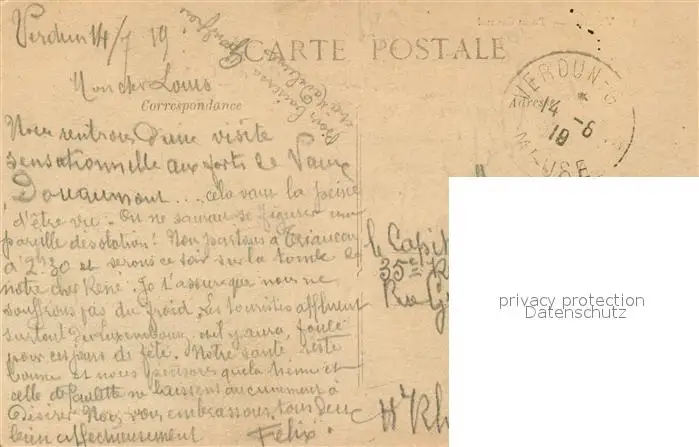 Verdun 14/7 19
CARTE POSTALE
Mon cher Louis
Correspondance
Adresse
VERDUN-S
14 - 6
19
MEUSE
Nous rentrons d'une visite
sensationnelle aux forts de Vaux
Douaumont ... cela vaut la peine
d'être vu. On ne saurait se figurer une
pareille désolation! Nous partons à Briancon
à 2h30 et serons ce soir sur la tombe de
notre cher René. Je t'assure que nous ne
souffrons pas du froid. Les touristes affluent
surtout du Luxembourg, et il y aura foule
pour ces jours de fête. Notre santé reste
bonne et nous pensons que la tienne et
celle de Paulette ne laissent aucunement à
désirer. Nous vous embrassons tous deux
bien affectueusement Félix.
le Capit
35e R
Rue G
Ht Rh
privacy protection
Datenschutz